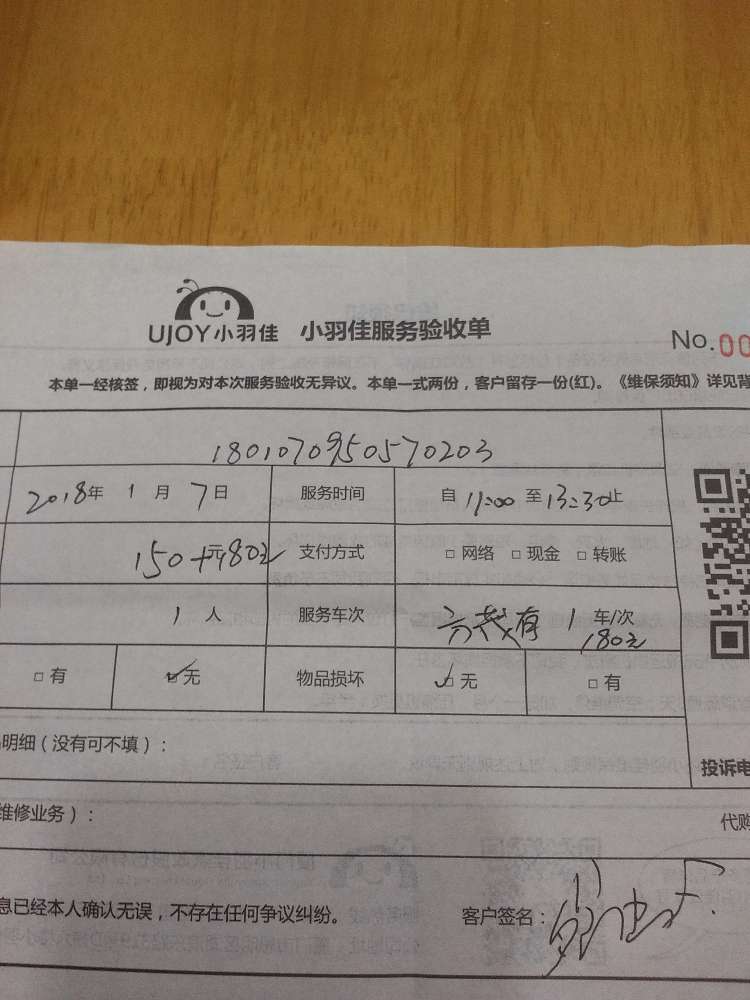 UJOY小羽佳 小羽佳服务验收单
No.00
本单一经核签，即视为对本次服务验收无异议。本单一式两份，客户留存一份(红)。《维保须知》详见背
1801070950570203
2018年 1月 7日 服务时间 自 11:00 至 13:30止
150+180元 元 支付方式 □ 网络 □ 现金 □ 转账
1人 服务车次 有 1 车/次
180元
□ 有 □ 无 物品损坏 □ 无 □ 有
明细（没有可不填）：
投诉电
维修业务）：
代购
息已经本人确认无误，不存在任何争议纠纷。 客户签名：